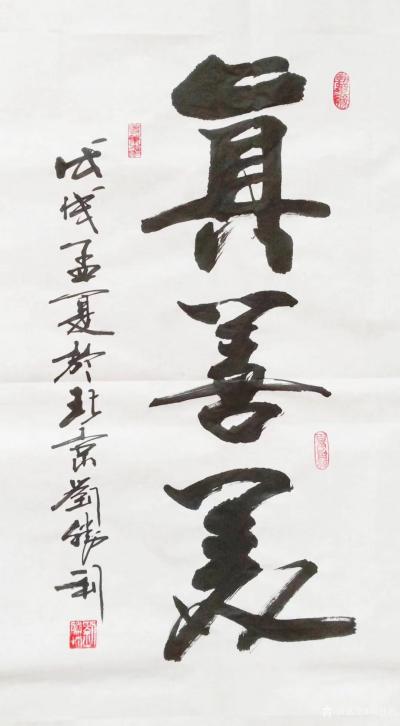 眞善美
戊戌孟夏於北京劉勝利